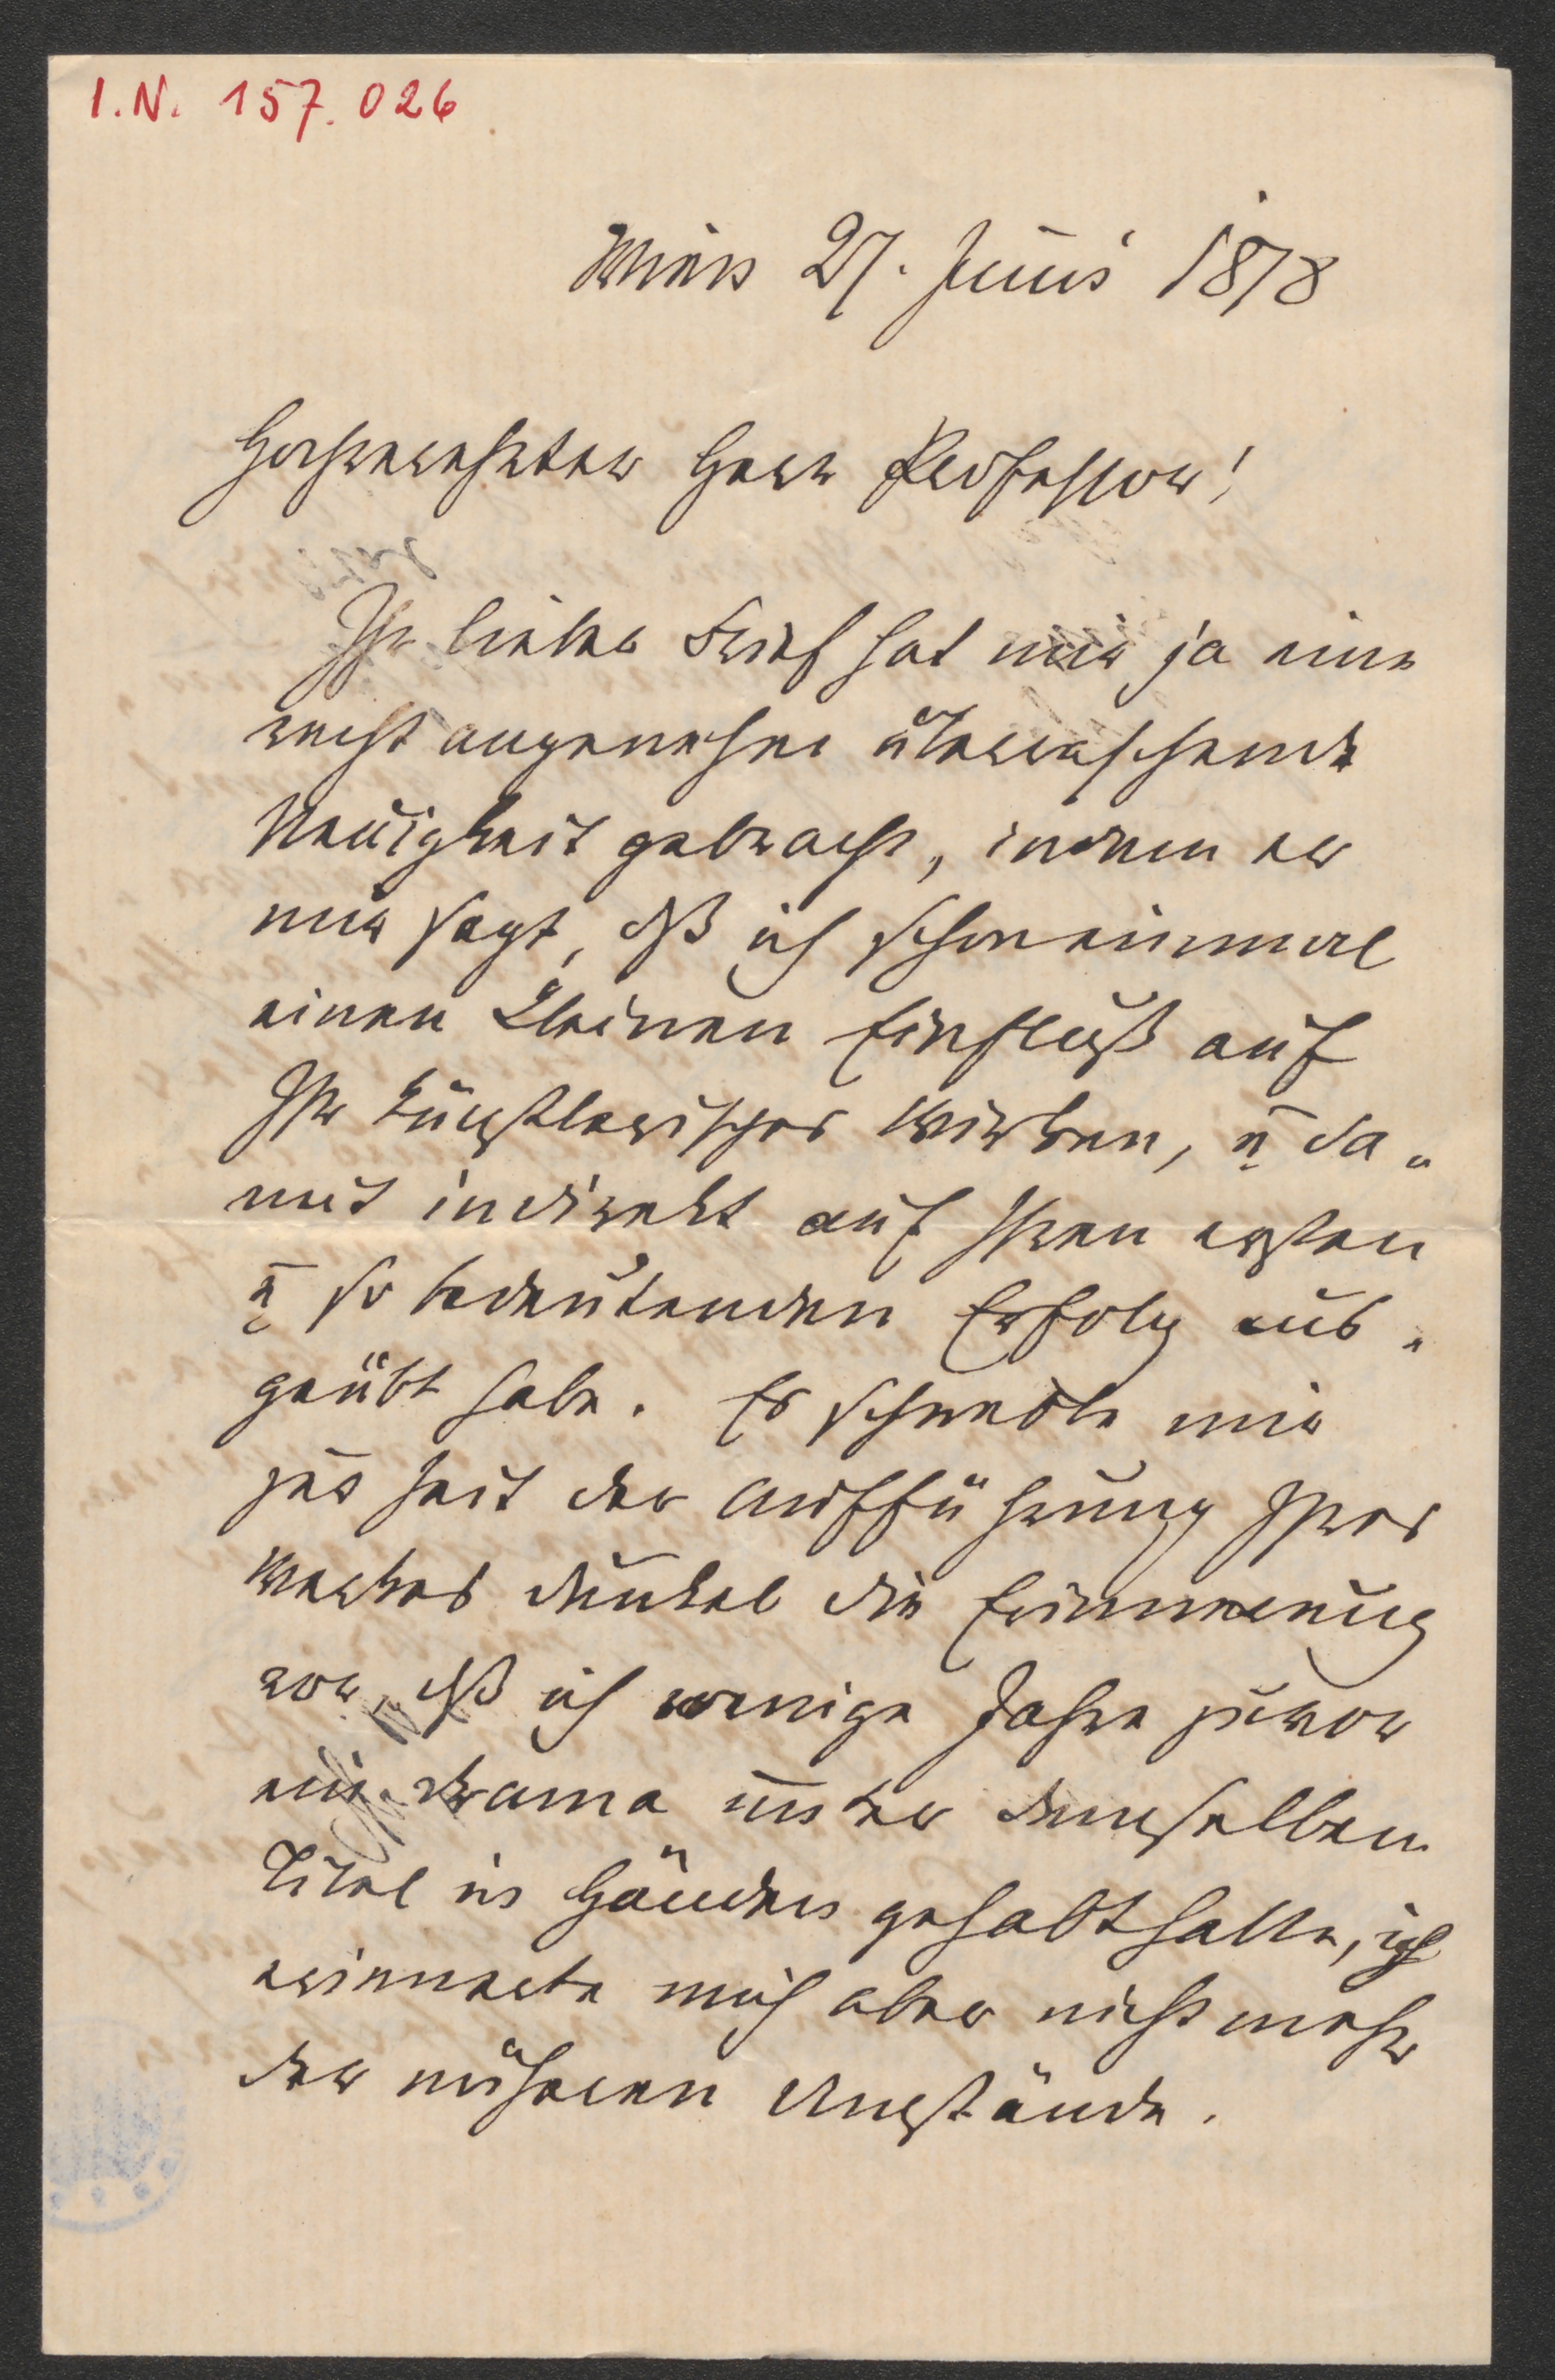 I.N. 157.026
Wien 27. Juni 1878
Hochverehrter Herr Professor!
Ihr lieber Brief hat mir ja eine
recht angenehm überraschende
Neuigkeit gebracht, indem er
mir sagt, dß ich schon einmal
einen kleinen Einfluß auf
Ihr künstlerisches Wirken, u da„
mit indirekt auf Ihren ersten
u so bedeutenden Erfolg aus„
geübt habe. Es schwebte mir
seit der Aufführung Ihres
Werkes dunkel die Erinnerung
vor, dß ich wenige Jahre zuvor
ein Drama unter demselben
Titel in Händen gehabt hatte, ich
erinnerte mich aber nicht mehr
der näheren Umstände.